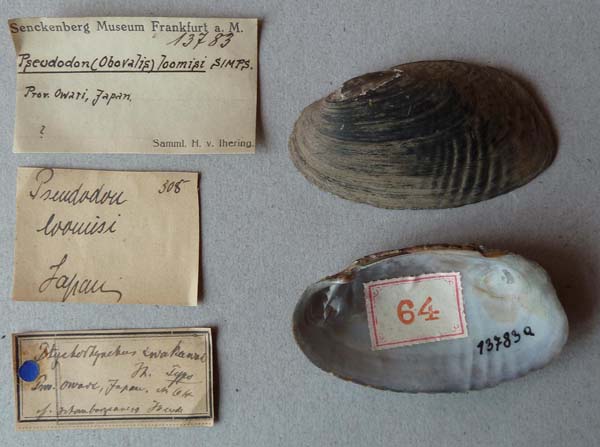 Senckenberg Museum Frankfurt a. M.
13783
Pseudodon (Obovalis) loomisi SIMPS.
Prov. Owari, Japan.
?
Samml. H. v. Ihering.
Pseudodon 308
loomisi
Japan
Ptychorhynchus
Jh. Type
Prov. Owari, Japan.
64
13783a